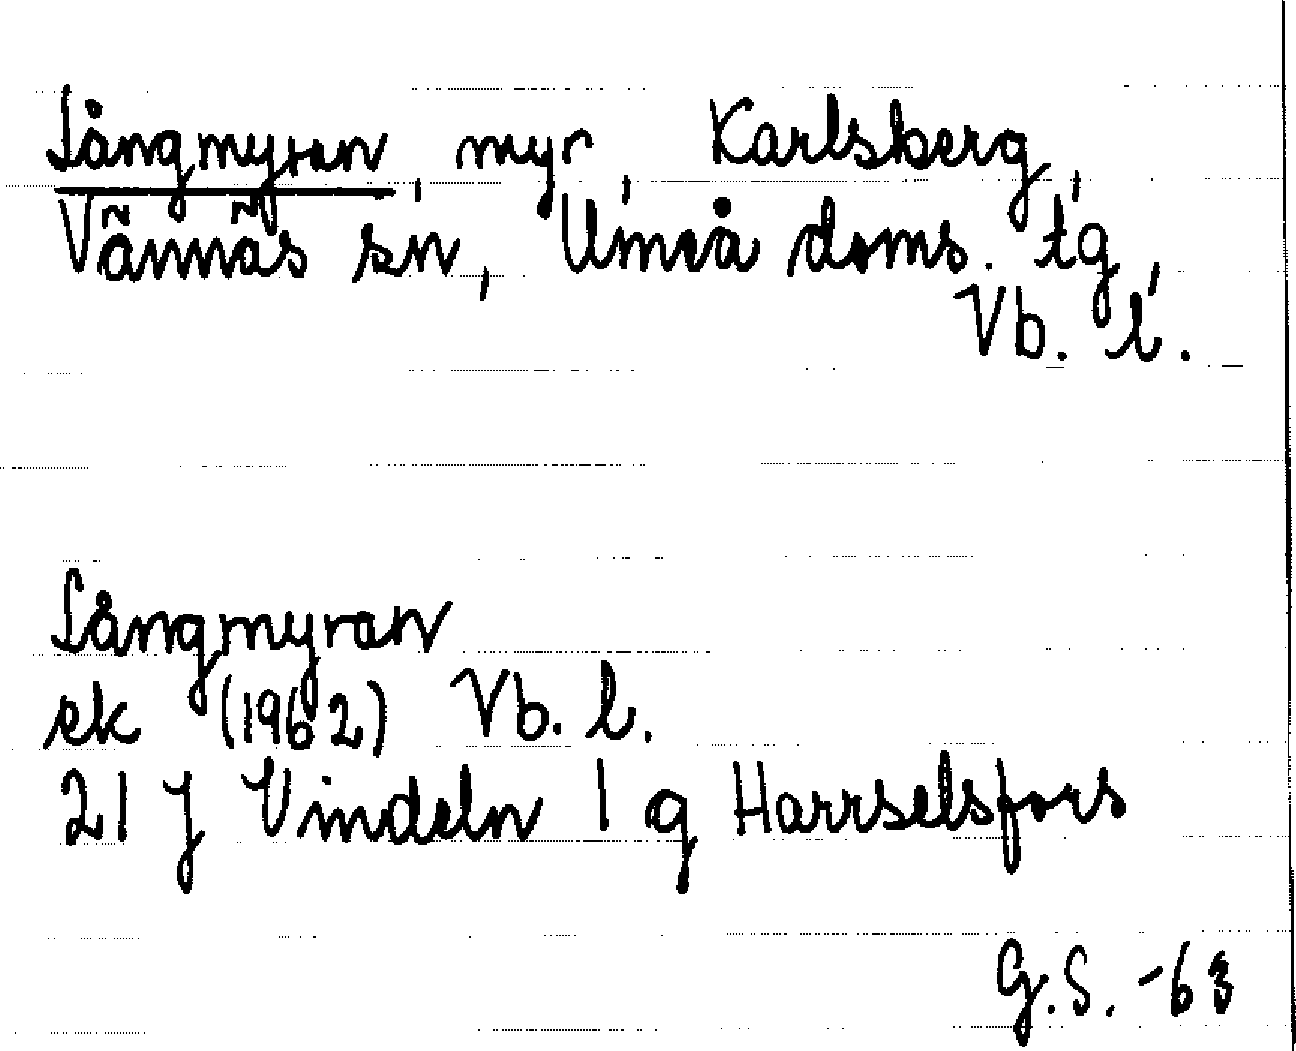 Långmyran, myr, Karlsberg,
Vännäs sn, Umeå doms. tg,
Vb. l.
Långmyran
ek (1962) Vb. l.
21 J Vindeln 1 g Harrselsfors
G.S. -63